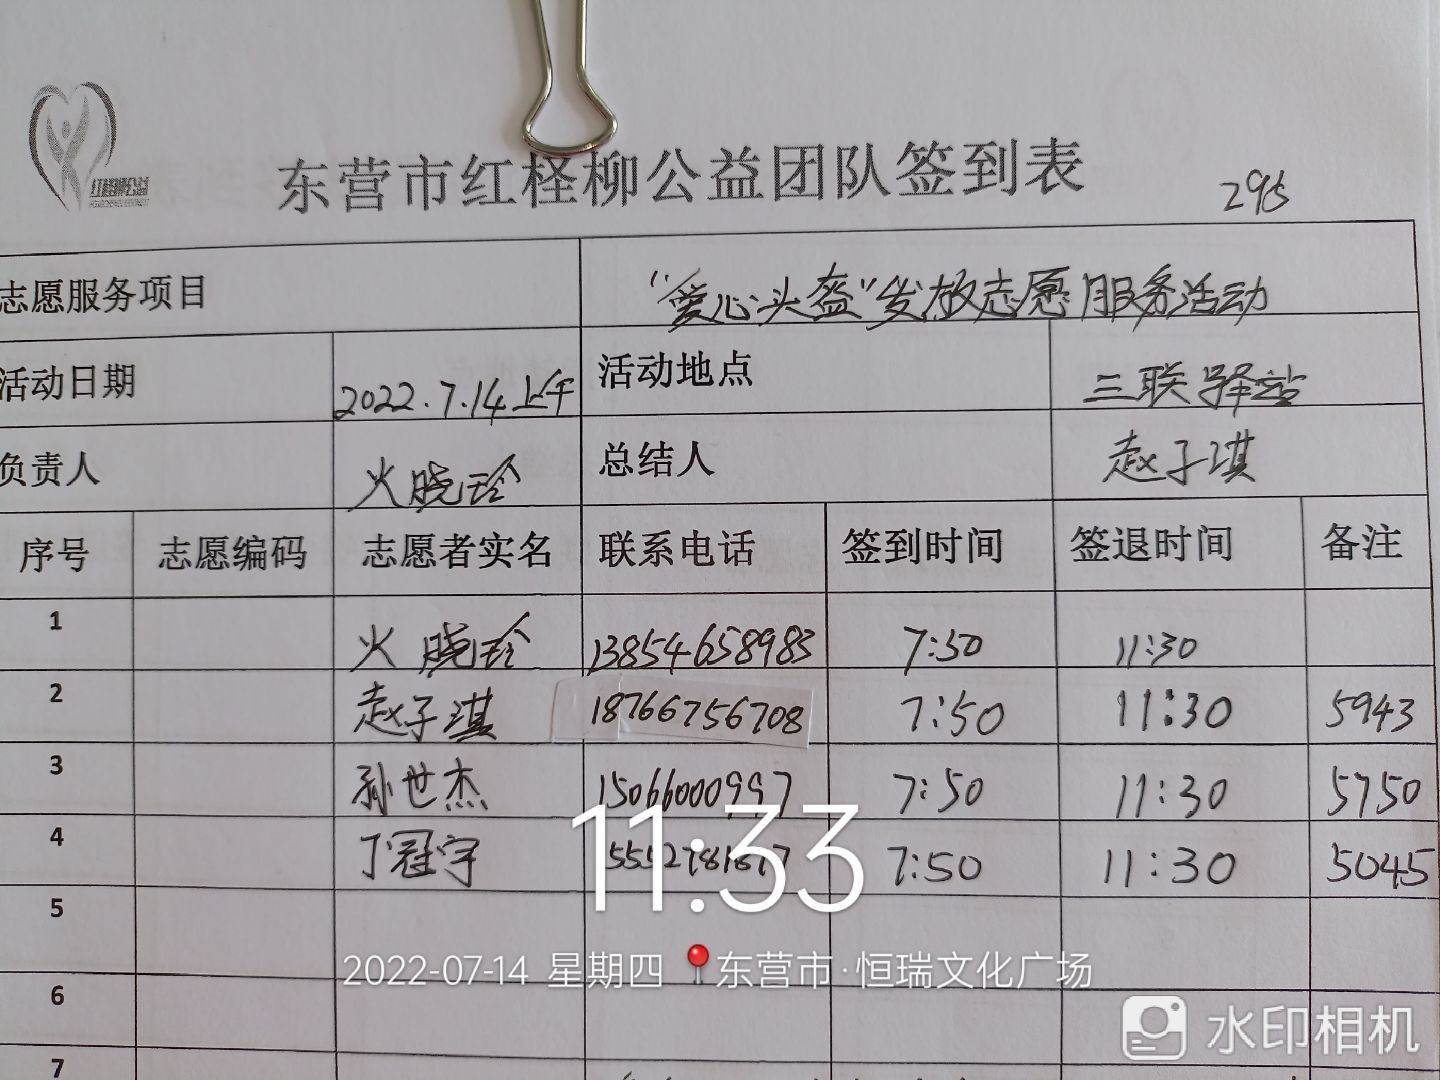 红柽柳公益
东营市红柽柳公益团队签到表
295
志愿服务项目 “爱心头盔”发放志愿服务活动
活动日期 2022.7.14上午 活动地点 三联驿站
负责人 火晓玲 总结人 赵子淇
序号 志愿编码 志愿者实名 联系电话 签到时间 签退时间 备注
1 火晓玲 13854658983 7:50 11:30
2 赵子淇 18766756708 7:50 11:30 5943
3 孙世杰 15066000997 7:50 11:30 5750
4 丁冠宇 7:50 11:30 5045
11:33
5
2022-07-14 星期四 东营市·恒瑞文化广场
6
水印相机
7